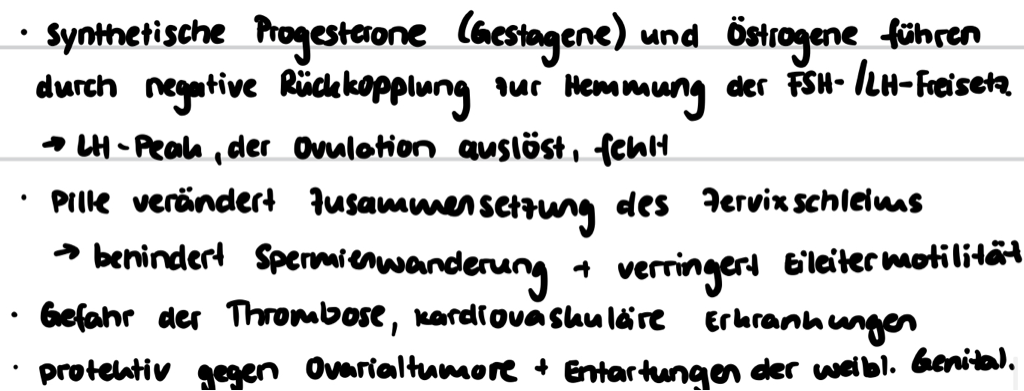 · Synthetische Progesterone (Gestagene) und Östrogene führen
durch negative Rückkopplung zur Hemmung der FSH-/LH-Freisetz.
→ LH-Peak, der Ovulation auslöst, fehlt
· Pille verändert Zusammensetzung des Zervixschleims
→ behindert Spermienwanderung + verringert Eileitermotilität
· Gefahr der Thrombose, kardiovaskuläre Erkrankungen
· protektiv gegen Ovarialtumore + Entartungen der weibl. Genital.